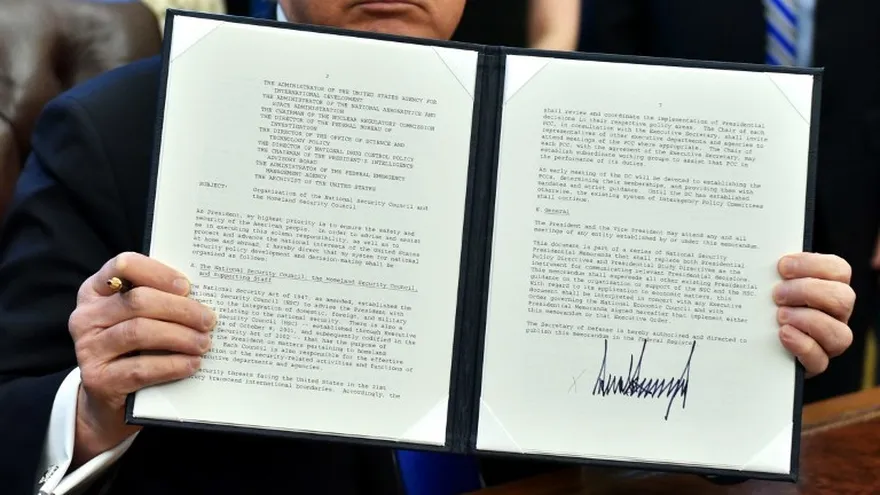 2
THE ADMINISTRATOR OF THE UNITED STATES AGENCY FOR
INTERNATIONAL DEVELOPMENT
THE ADMINISTRATOR OF THE NATIONAL AERONAUTICS AND
SPACE ADMINISTRATION
THE CHAIRMAN OF THE NUCLEAR REGULATORY COMMISSION
THE DIRECTOR OF THE FEDERAL BUREAU OF
INVESTIGATION
THE DIRECTOR OF THE OFFICE OF SCIENCE AND
TECHNOLOGY POLICY
THE DIRECTOR OF NATIONAL DRUG CONTROL POLICY
THE CHAIRMAN OF THE PRESIDENT'S INTELLIGENCE
ADVISORY BOARD
THE ADMINISTRATOR OF THE FEDERAL EMERGENCY
MANAGEMENT AGENCY
THE ARCHIVIST OF THE UNITED STATES
SUBJECT: Organization of the National Security Council and
the Homeland Security Council
As President, my highest priority is to ensure the safety and
security of the American people. In order to advise and assist
me in executing this solemn responsibility, as well as to
protect and advance the national interests of the United States
at home and abroad, I hereby direct that my system for national
security policy development and decision-making shall be
organized as follows:
A. The National Security Council, the Homeland Security Council,
and Supporting Staff
The National Security Act of 1947, as amended, established the
National Security Council (NSC) to advise the President with
respect to the integration of domestic, foreign, and military
relating to the national security. There is also a
Security Council (HSC) -- established through Executive
of October 8, 2001, and subsequently codified in the
Security Act of 2002 -- that has the purpose of
the President on matters pertaining to homeland
Each Council is also responsible for the effective
of the security-related activities and functions of
executive departments and agencies.
security threats facing the United States in the 21st
transcend international boundaries. Accordingly, the
7
shall review and coordinate the implementation of Presidential
decisions in their respective policy areas. The Chair of each
PCC, in consultation with the Executive Secretary, shall invite
representatives of other executive departments and agencies to
attend meetings of the PCC where appropriate. The Chair of
each PCC, with the agreement of the Executive Secretary, may
establish subordinate working groups to assist that PCC in
the performance of its duties.
An early meeting of the DC will be devoted to establishing the
PCCs, determining their memberships, and providing them with
mandates and strict guidance. Until the DC has established
otherwise, the existing system of Interagency Policy Committees
shall continue.
E. General
The President and the Vice President may attend any and all
meetings of any entity established by or under this memorandum.
This document is part of a series of National Security
Presidential Memoranda that shall replace both Presidential
Policy Directives and Presidential Study Directives as the
instrument for communicating relevant Presidential decisions.
This memorandum shall supersede all other existing Presidential
guidance on the organization or support of the NSC and the HSC.
With regard to its application to economic matters, this
document shall be interpreted in concert with any Executive
Order governing the National Economic Council and with
Presidential Memoranda signed hereafter that implement either
this memorandum or that Executive Order.
The Secretary of Defense is hereby authorized and directed to
publish this Memorandum in the Federal Register.